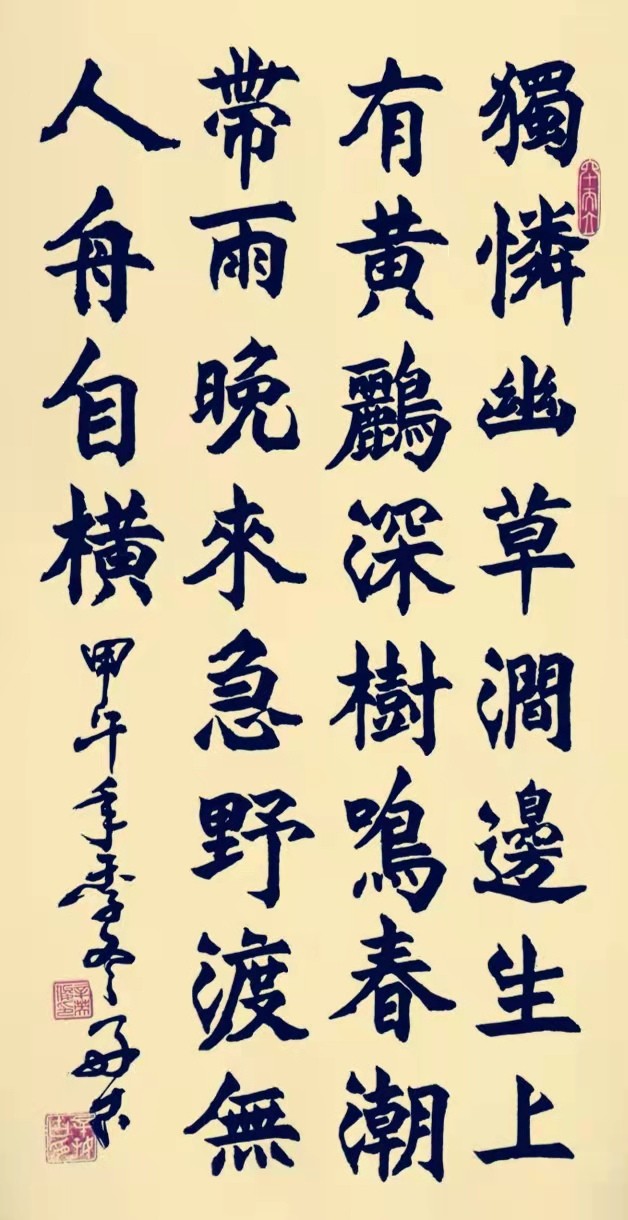 獨憐幽草澗邊生上
有黄鸝深樹鳴春潮
帶雨晚來急野渡無
人舟自横
甲午年季冬